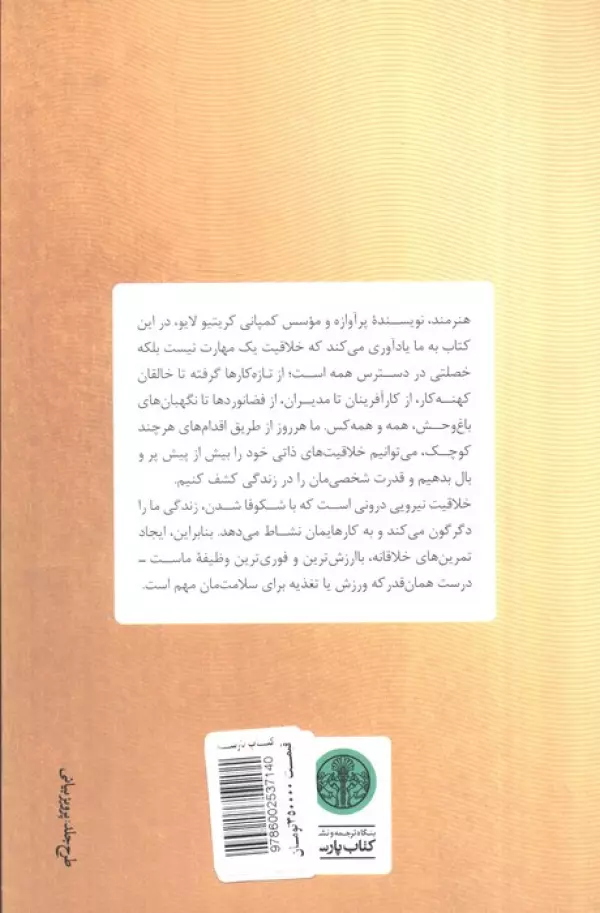 هنرمند، نویسندهٔ پرآوازه و مؤسس کمپانی کریتیو لایو، در این
کتاب به ما یادآوری می‌کند که خلاقیت یک مهارت نیست بلکه
خصلتی در دسترس همه است؛ از تازه‌کارها گرفته تا خالقان
کهنه‌کار، از کارآفرینان تا مدیران، از فضانوردها تا نگهبان‌های
باغ‌وحش، همه و همه‌کس. ما هرروز از طریق اقدام‌های هرچند
کوچک، می‌توانیم خلاقیت‌های ذاتی خود را بیش از پیش پر و
بال بدهیم و قدرت شخصی‌مان را در زندگی کشف کنیم.
خلاقیت نیرویی درونی است که با شکوفا شدن، زندگی ما را
دگرگون می‌کند و به کارهایمان نشاط می‌دهد. بنابراین، ایجاد
تمرین‌های خلاقانه، باارزش‌ترین و فوری‌ترین وظیفهٔ ماست ـ
درست همان‌قدر که ورزش یا تغذیه برای سلامت‌مان مهم است.
طرح جلد: پرویز بیانی
9786002537140
قیمت ۳۵۰۰۰۰ تومان
بنگاه ترجمه و نشر
کتاب پارسه